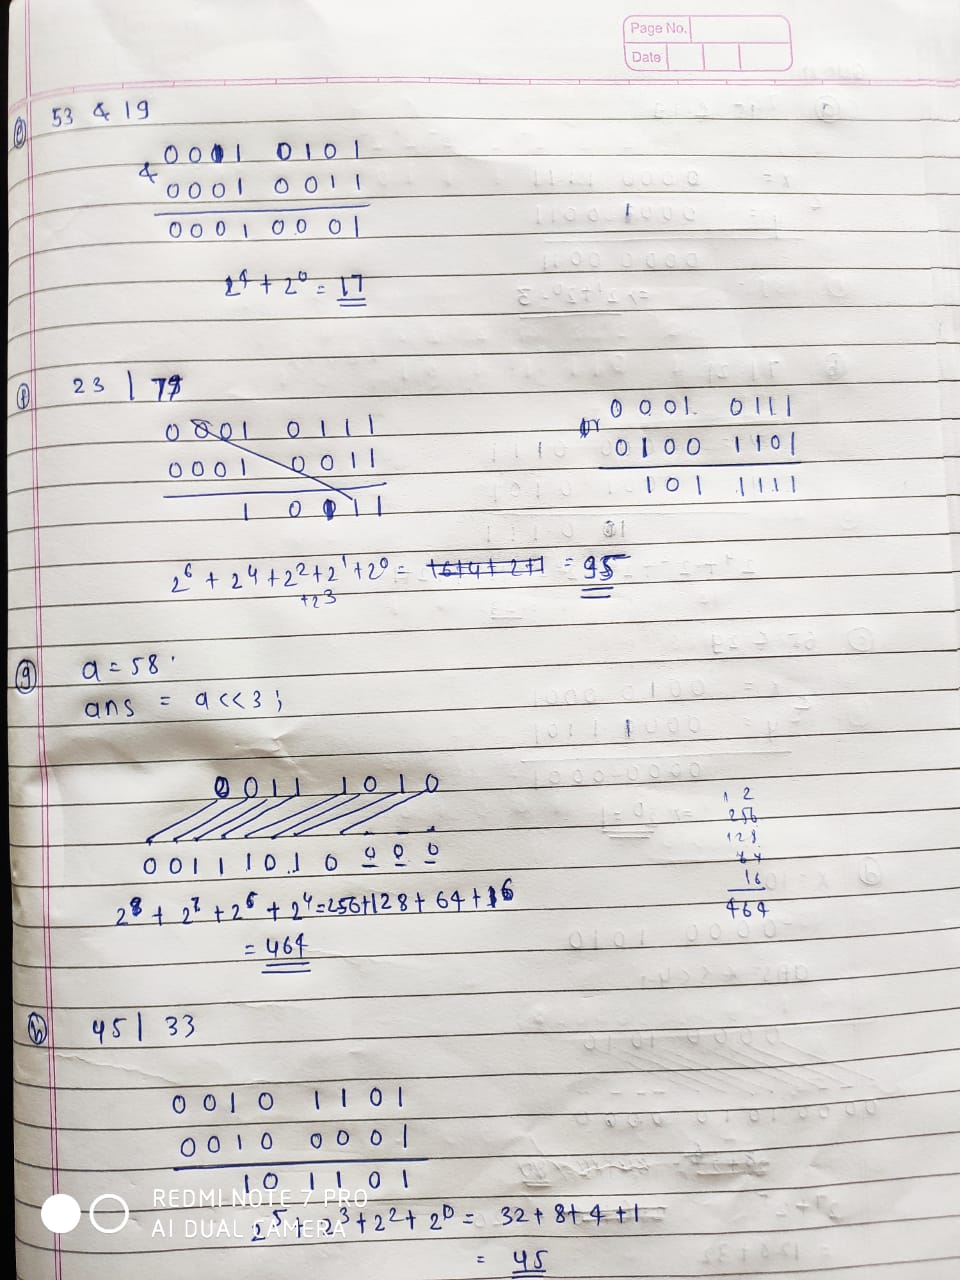 Page No.
Date
e 53 & 19
0011 0101
& 0001 0011
0001 0001
2^4 + 2^0 = 17
f 23 | 77
0001 0111
0001 0011
1 0011
0001 0111
or 0100 1101
101 1111
2^6 + 2^4 + 2^2 + 2^1 + 2^0 = 16+4+2+1 = 95
+2^3
g a = 58
ans = a << 3;
0011 1010
0 0 1 1 1 0 1 0 0 0 0
2^8 + 2^7 + 2^6 + 2^4 = 256+128+64+16
= 464
1 2
256
128
64
16
464
h 45 | 33
0010 1101
0010 0001
10 1101
2^5 + 2^3 + 2^2 + 2^0 = 32+8+4+1
= 45
REDMI NOTE 7 PRO
AI DUAL CAMERA